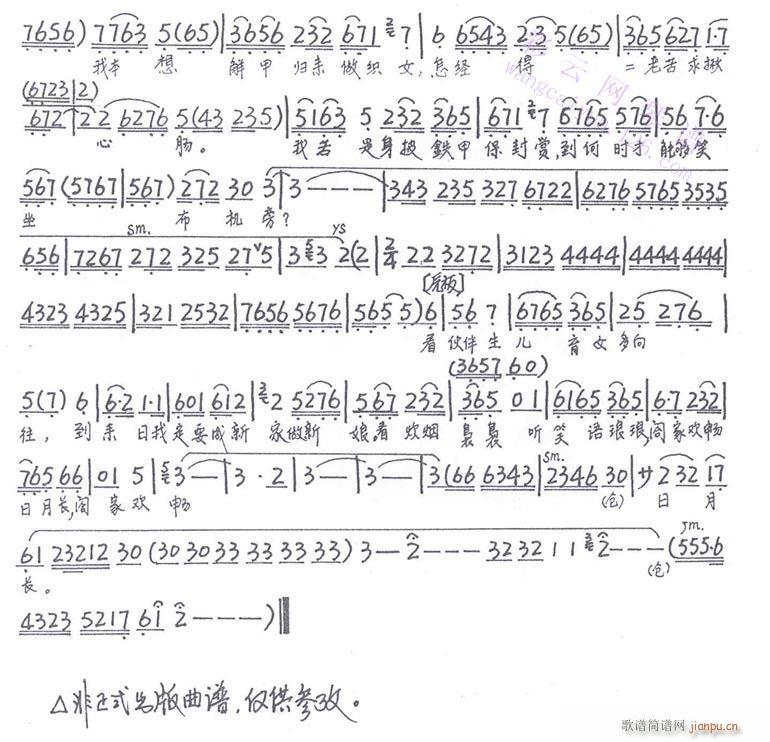 7656) 7763 5(65) | 3656 232 671 7 | 6 6543 2·3 5(65) | 365 627 1·7
我本 想 解甲 归来 做织 女,怎经 得 二老苦求揪
(6723 | 2)
672 | 2 2 6276 5(43 235) | 5163 5 232 365 | 671 7 6765 576 | 56 7·6
心 肠。 我若 是身披 鉄甲 保封赏,到何 时才 能够笑
567 (5767 | 567) 272 30 3 | 3 — — — | 343 235 327 6722 | 6276 5765 3535
坐 布 机旁?
sm. ys
656 | 7267 272 325 27 5 | 3 3 2 (2 | 2/4 2 2 3272 | 3123 4444 | 4444 4444 |
4323 4325 | 321 2532 | 7656 5676 | 565 5) 6 | 56 7 | 6765 365 | 25 276 |
看 伙伴 生 儿 育女 多向
(3657 60)
5(7) 6 | 6·2 1·1 | 601 612 | 2 5276 | 567 232 | 365 0 1 | 6165 365 | 6·7 232 |
往, 到 来 日我是要成新 家做新 娘,看 炊烟 袅袅 听 笑 语琅琅,阖家欢畅
765 66 | 01 5 | 3 — | 3 · 2 | 3 — | 3 — | 3(66 6343 | 2346 30 | サ 2 32 17
sm.
日月长,阖 家欢 畅 (仓) 日 月
61 23212 30 (30 30 33 33 33 33) 3 — 2 — — — 32 32 1 1 2 — — — (555·6
长。 (仓)
4323 5217 61 2 — — — )
△非正式出版曲谱,仅供参改。
歌谱简谱网 jianpu.cn